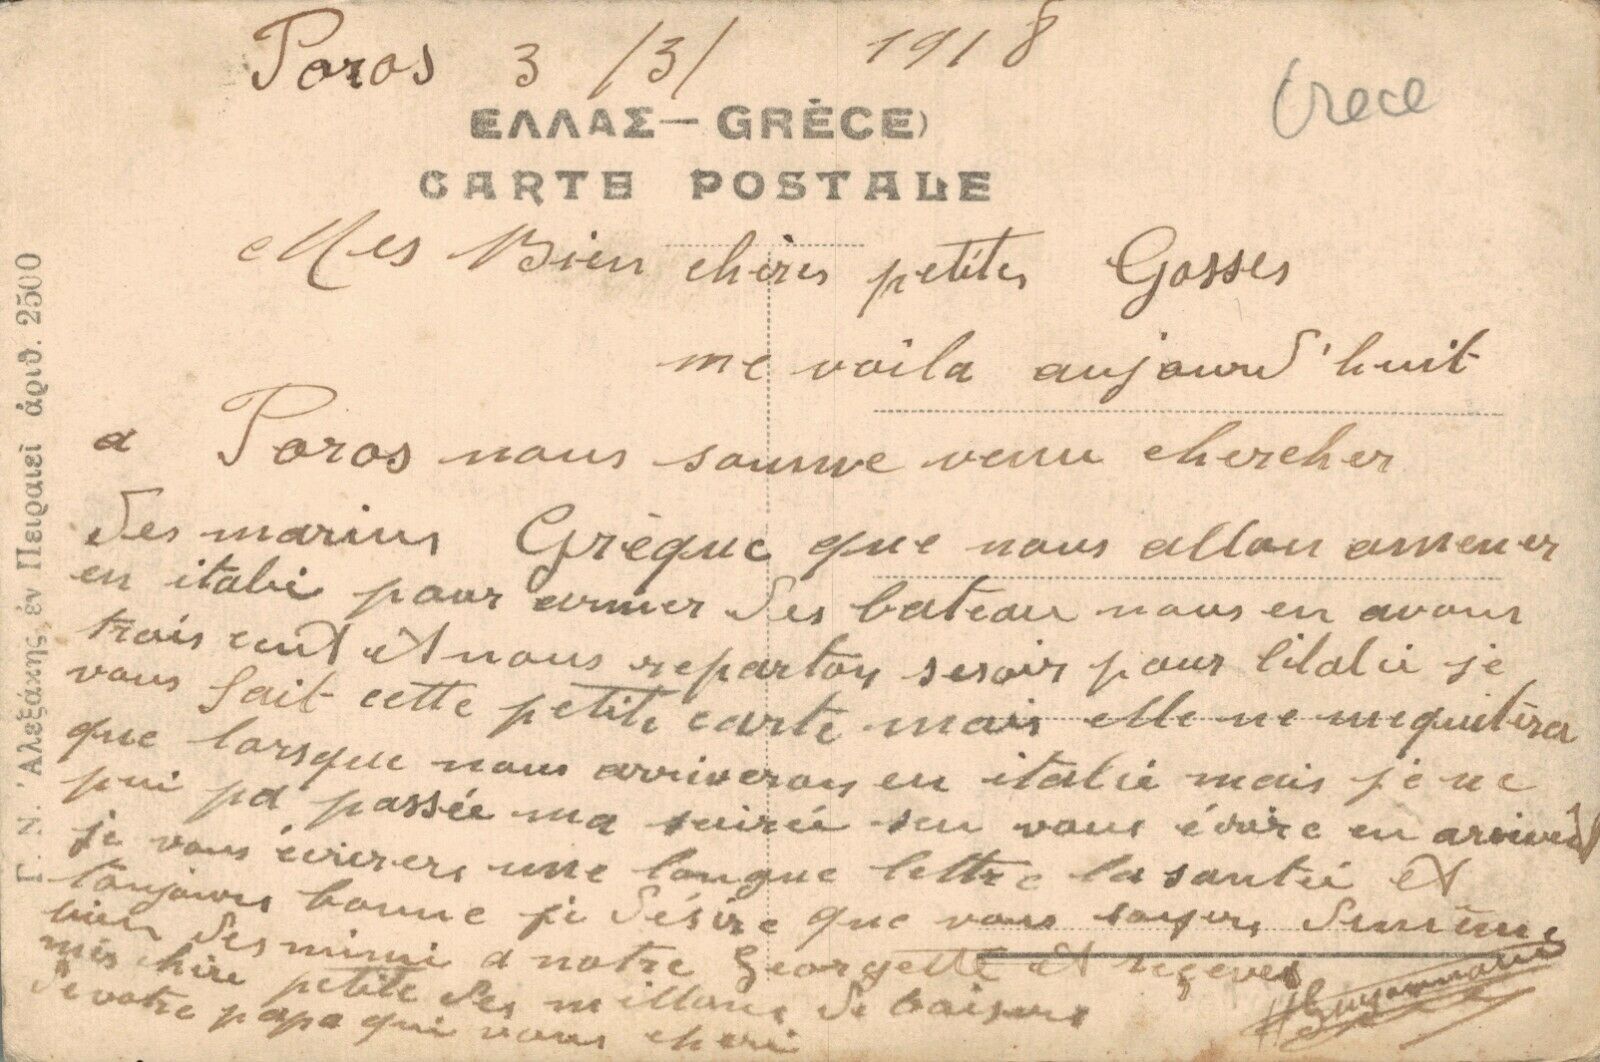 Poros 3 /3/ 1918
Grece
ΕΛΛΑΣ—GRÈCE)
CARTE POSTALE
Mes Bien chères petites Gosses
me voila aujourd'huit
a Poros nous somme venu chercher
des marins Grèque que nous allon amener
en italie pour armer des bateau nous en avons
trois cent et nous reparton sesoir pour litalie je
vous fait cette petite carte mais elle ne me quitera
que lorsque nous arriverons en italie mais je ne
pui pa passée ma soirée sen vous écrire en arivent
je vous écrirers une longue lettre la santée et
toujours bonne je désire que vous soyers de même
bien des mimi a notre Georgette et reçeves
mes chère petite des millions de baisers
de votre papa qui vous cheri
Γ. Ν. Ἀλεξάκης, ἐν Πειραιεῖ ἀριθ. 2500